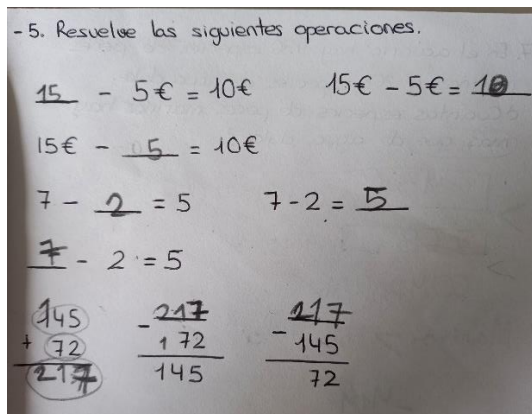 -5. Resuelve las siguientes operaciones.
15 - 5€ = 10€ 15€ - 5€ = 10
15€ - 5 = 10€
7 - 2 = 5 7 - 2 = 5
7 - 2 = 5
145 - 217 - 217
+ 72 1 72 145
217 145 72